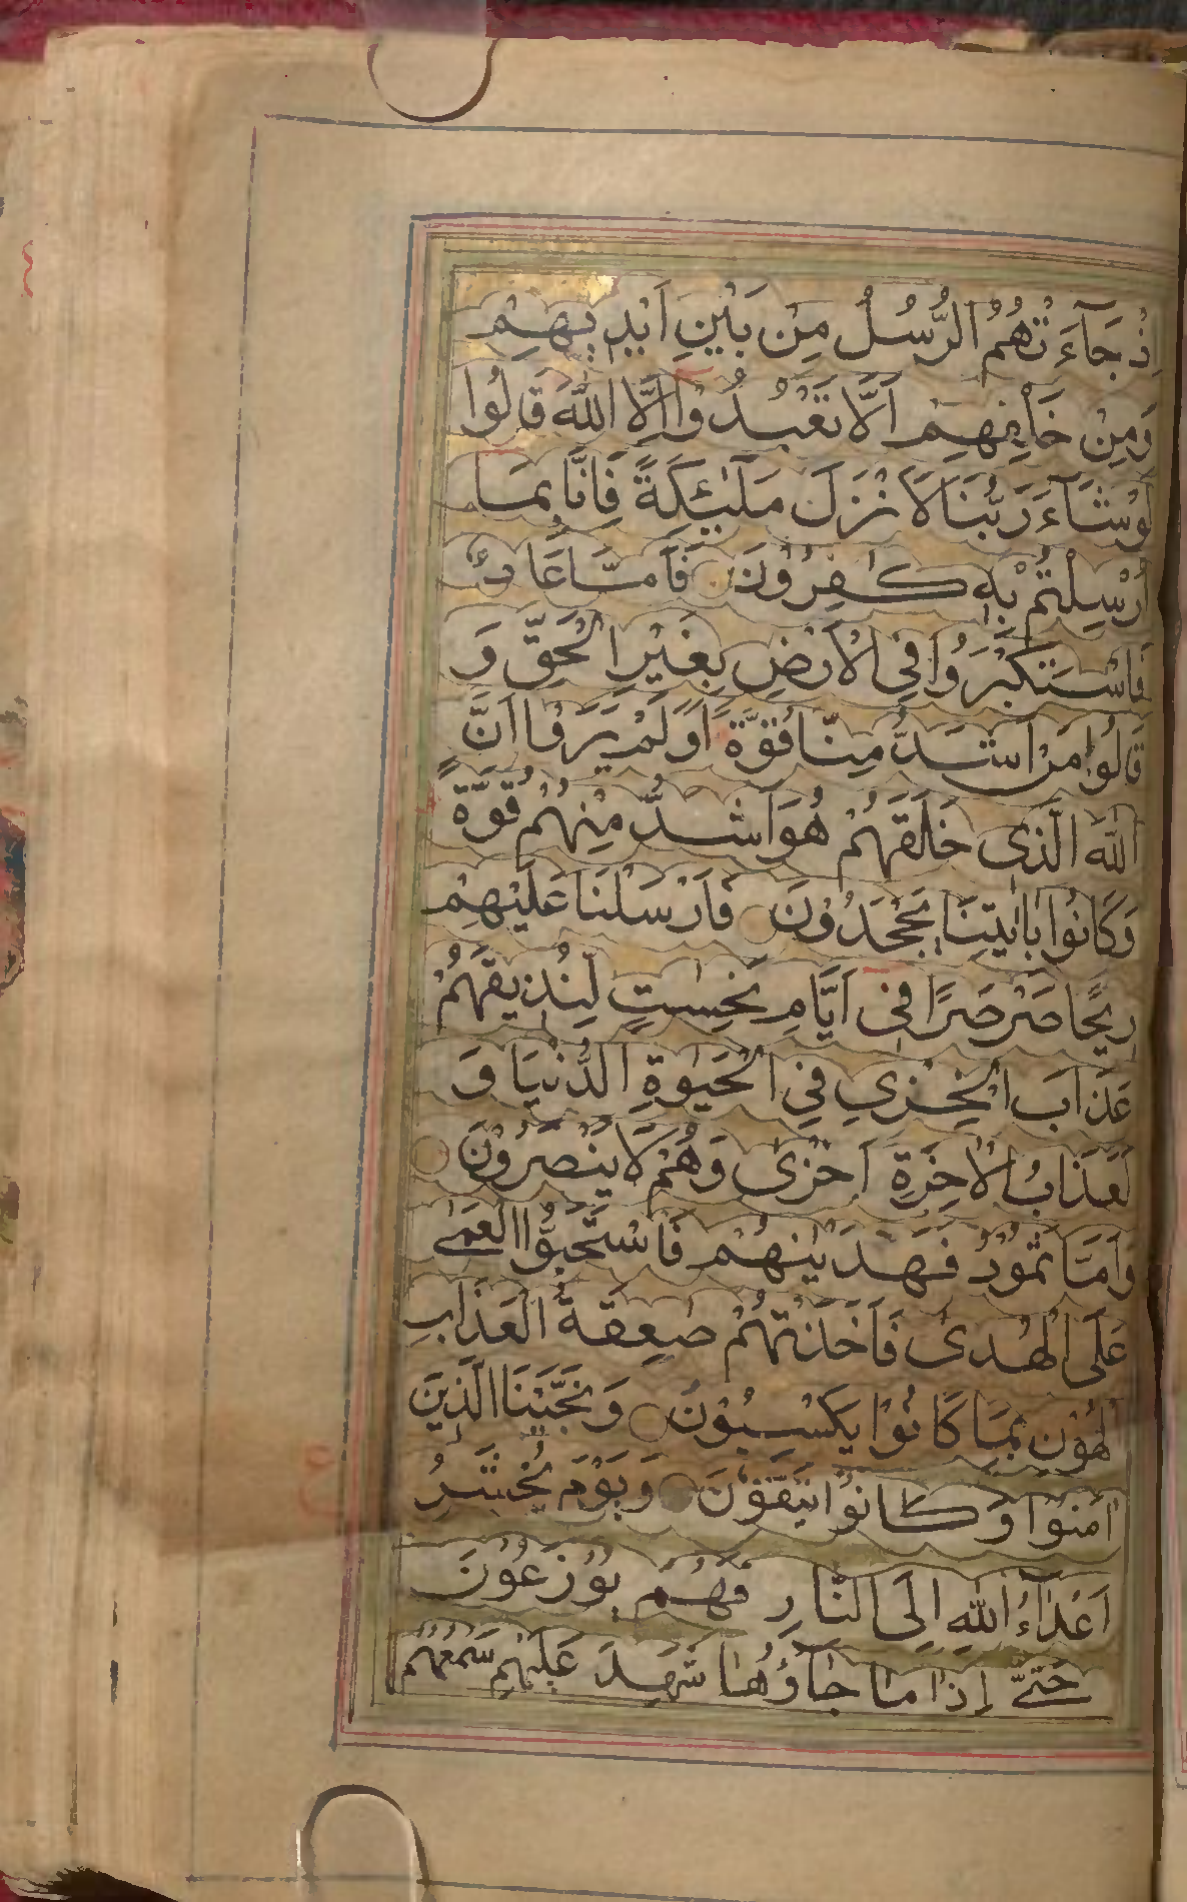 اِذْ جَآءَ تْهُمُ الرُّسُلُ مِنْ بَيْنِ اَيْدِ يهِمْ
وَمِنْ خَلْفِهِمْ اَلَّا تَعْبُدُ وْا اِلَّا اللّٰهَ قَالُوْا
لَوْ شَآءَ رَبُّنَا لَاَ نْزَلَ مَلٰٓئِكَةً فَاِنَّا بِمَا
اُرْسِلْتُمْ بِهٖ كٰفِرُوْنَ فَاَمَّا عَادٌ
فَاسْتَكْبَرُوْا فِي الْاَرْضِ بِغَيْرِ الْحَقِّ وَ
قَالُوْا مَنْ اَشَدُّ مِنَّا قُوَّةً اَوَلَمْ يَرَوْا اَنَّ
اللّٰهَ الَّذِى خَلَقَهُمْ هُوَ اَشَدُّ مِنْهُمْ قُوَّةً
وَكَانُوْا بِاٰيٰتِنَا يَجْحَدُوْنَ فَاَرْسَلْنَا عَلَيْهِمْ
رِيْحًا صَرْصَرًا فِى اَيَّامٍ نَحِسَاتٍ لِنُذِيْقَهُمْ
عَذَابَ الْخِزْىِ فِى الْحَيٰوةِ الدُّنْيَا وَ
لَعَذَابُ الْاٰخِرَةِ اَخْزٰى وَهُمْ لَا يُنْصَرُوْنَ
وَاَمَّا ثَمُوْدُ فَهَدَيْنٰهُمْ فَاسْتَحَبُّوا الْعَمٰى
عَلَى الْهُدٰى فَاَخَذَتْهُمْ صٰعِقَةُ الْعَذَابِ
الْهُوْنِ بِمَا كَانُوْا يَكْسِبُوْنَ وَنَجَّيْنَا الَّذِيْنَ
اٰمَنُوْا وَكَانُوْا يَتَّقُوْنَ وَيَوْمَ يُحْشَرُ
اَعْدَآءُ اللّٰهِ اِلَى النَّارِ فَهُمْ يُوْزَعُوْنَ
حَتّٰى اِذَا مَا جَآؤُهَا شَهِدَ عَلَيْهِمْ سَمْعُهُمْ
ع